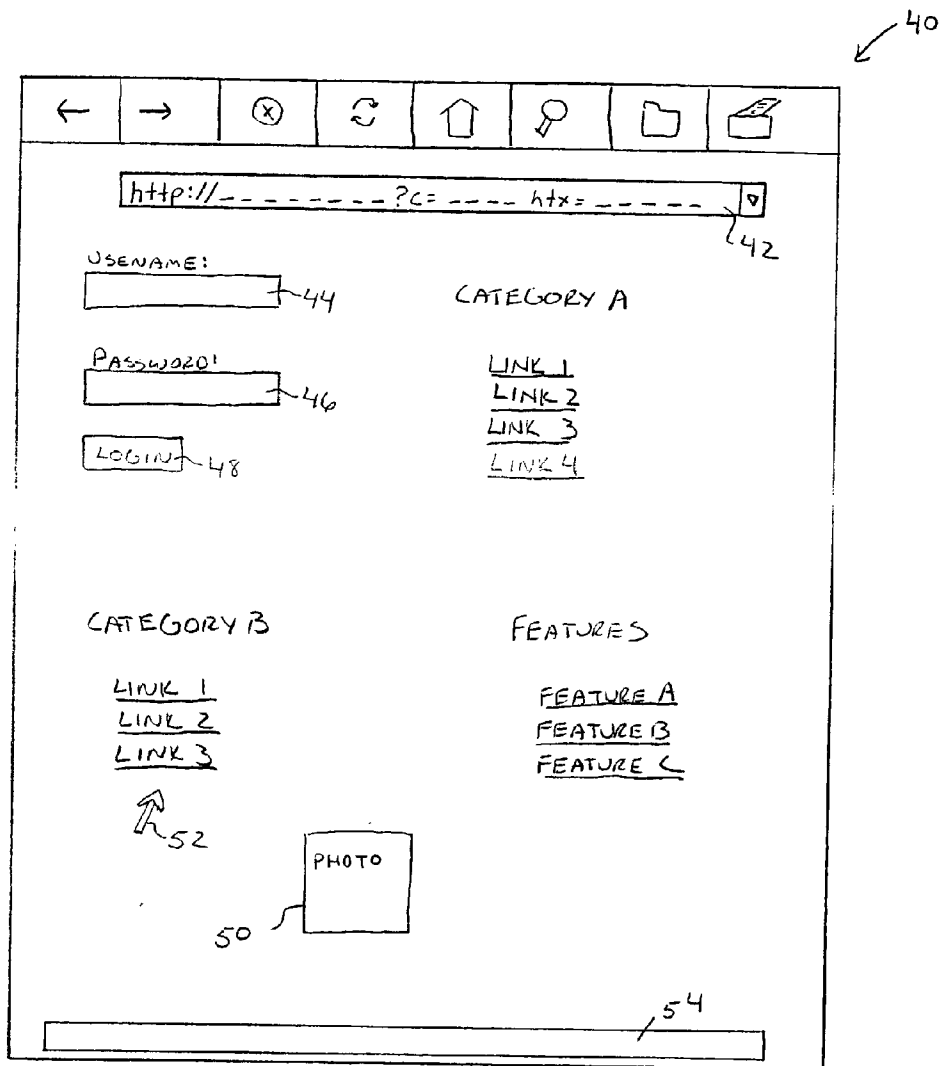 40
http://_ _ _ _ _ _ _ _ ?c= _ _ _ _ htx= _ _ _ _ _
42
USENAME:
44
PASSWORD:
46
LOGIN
48
CATEGORY A
LINK 1
LINK 2
LINK 3
LINK 4
CATEGORY B
LINK 1
LINK 2
LINK 3
52
FEATURES
FEATURE A
FEATURE B
FEATURE C
PHOTO
50
54